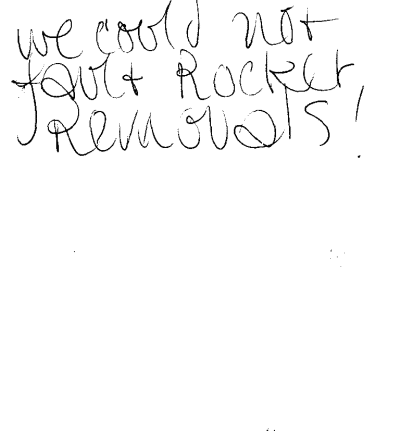 we could not
fault Rocket
Removals!